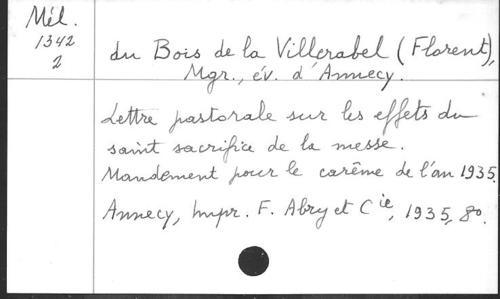 Mél.
1342
2
du Bois de la Villerabel (Florent),
Mgr., év. d'Annecy.
Lettre pastorale sur les effets du
saint sacrifice de la messe.
Mandement pour le carême de l'an 1935.
Annecy, Impr. F. Abry et Cie, 1935, 8o.